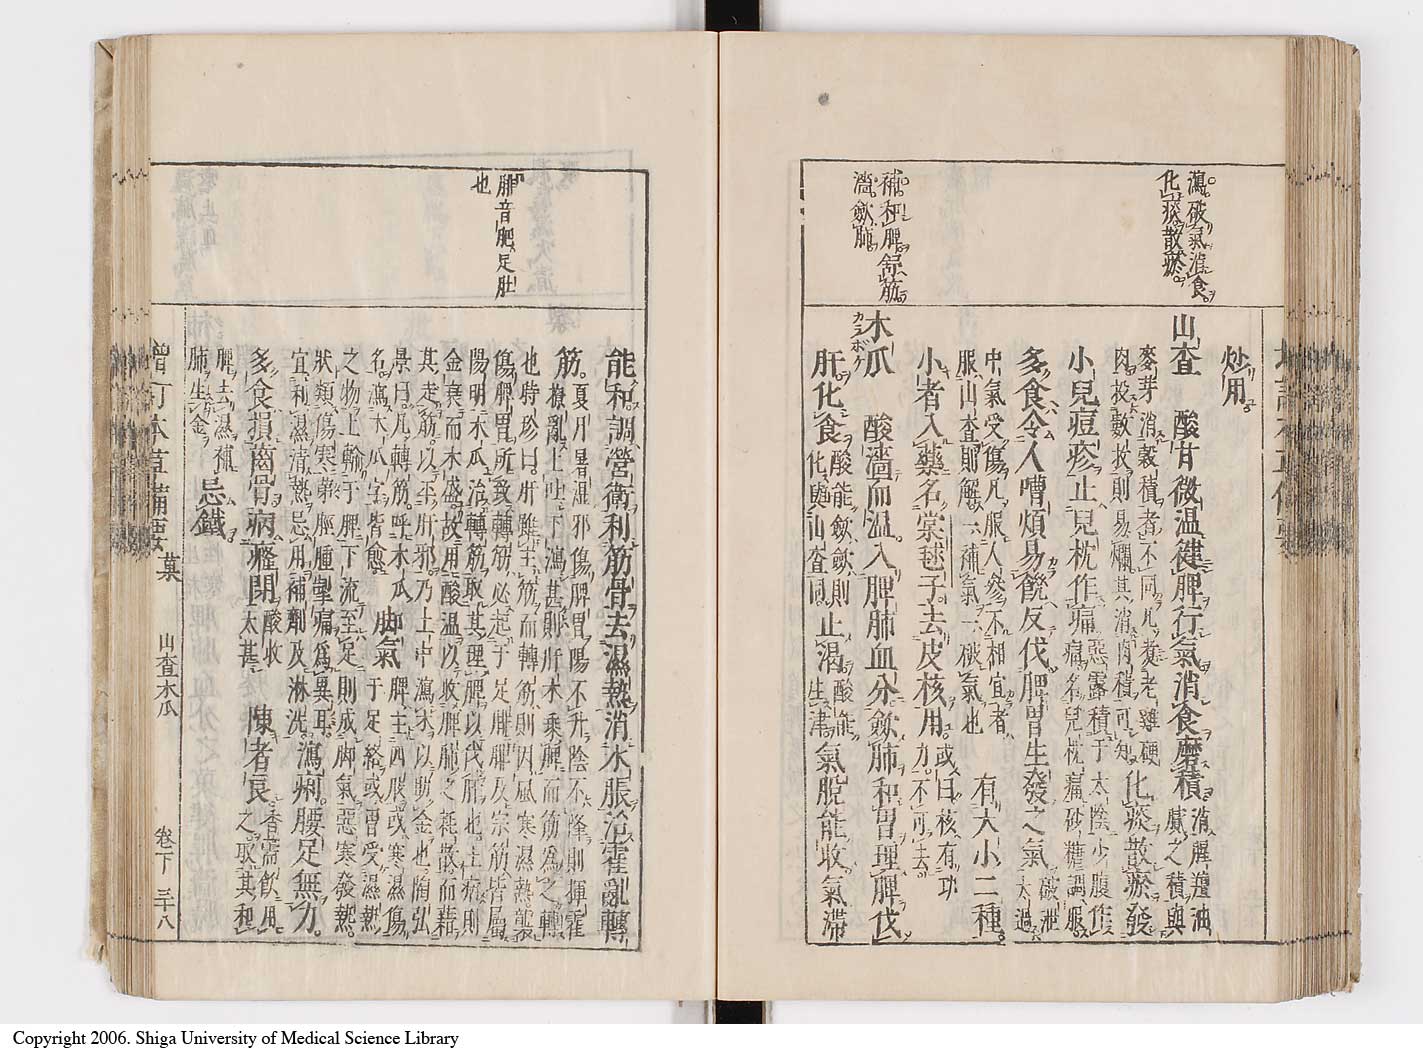 瀉破氣消食
化痰散瘀
補和脾舒筋
濇斂肺
炒用
山査 酸甘微溫健脾行氣消食磨積 消腥羶油膩之積與
麥芽消穀積者不同凡煮老雞硬肉投數枚則易爛其消肉積可知 化痰散瘀發
小兒痘疹止兒枕作痛 惡露積于太陰少腹作痛名兒枕痛砂糖調服
多食令人嘈煩易饑反伐脾胃生發之氣 破泄太過
中氣受傷凡服人參不相宜者服山査則解一補氣一破氣也 有大小二種
小者入藥名棠毬子去皮核用 或曰核有功力不可去
木瓜 酸濇而溫入脾肺血分斂肺和胃理脾伐
カラボケ
肝化食 酸能斂斂則化與山査同 止渴 酸能生津 氣脫能收氣滯
腓音肥足肚
也
能和調營衛利筋骨去濕熱消水脹治霍亂轉
筋 夏月暑濕邪傷脾胃陽不升陰不降則揮霍
撩亂上吐下瀉甚則肝木乘脾而筋爲之轉
也時珍曰肝雖主筋而轉筋則因風寒濕熱襲
傷脾胃所致轉筋必起于足腓腓及宗筋皆屬
陽明木瓜治轉筋取其理脾以伐肝也土病則
金衰而木盛故用酸溫以收脾肺之耗散而藉
其走筋以平肝邪乃土中瀉木以助金也陶弘
景曰凡轉筋呼木瓜
名瀉木瓜字皆愈 脚氣 脾主四肢或寒濕傷于足絡或胃受濕熱
之物上輸于脾下流至足則成脚氣惡寒發熱
狀類傷寒第脛腫掣痛爲異耳
宜利濕淸熱忌用補劑及淋洗 瀉痢腰足無力
多食損齒骨病癃閉 酸收太甚 陳者良 香薷飮用之取其和
脾去濕補肺生金 忌鐵
增訂本草備要 菓 山査木瓜 卷下 三十八